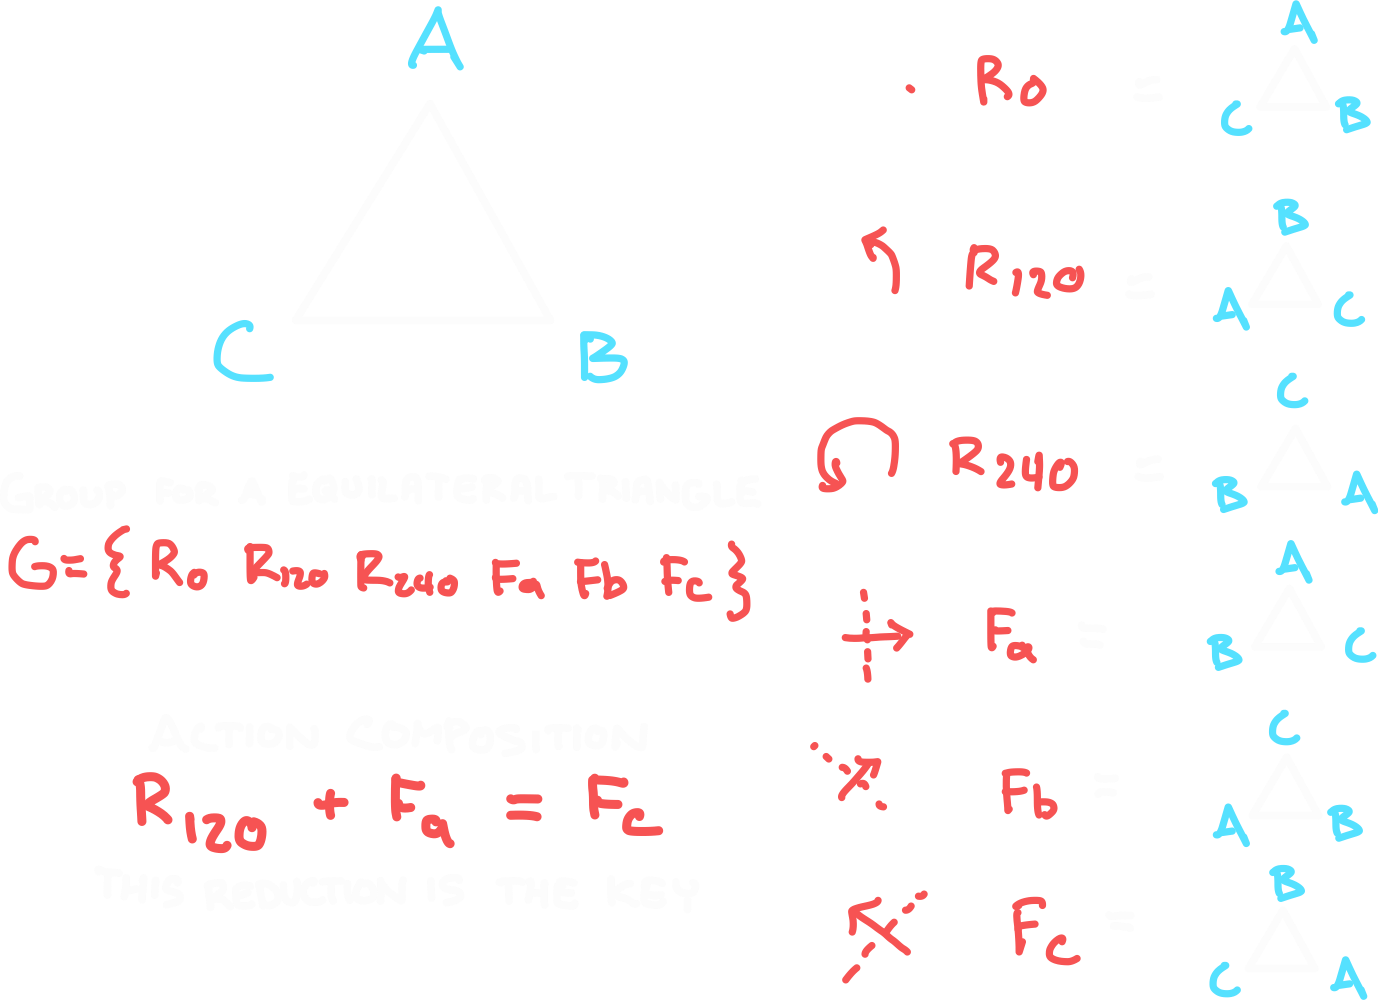 A
C B
GROUP FOR A EQUILATERAL TRIANGLE
G = { R0 R120 R240 Fa Fb Fc }
ACTION COMPOSITION
R120 + Fa = Fc
THIS REDUCTION IS THE KEY
. R0 =
A
C B
R120 =
B
A C
R240 =
C
B A
Fa =
A
B C
Fb =
C
A B
Fc =
B
C A